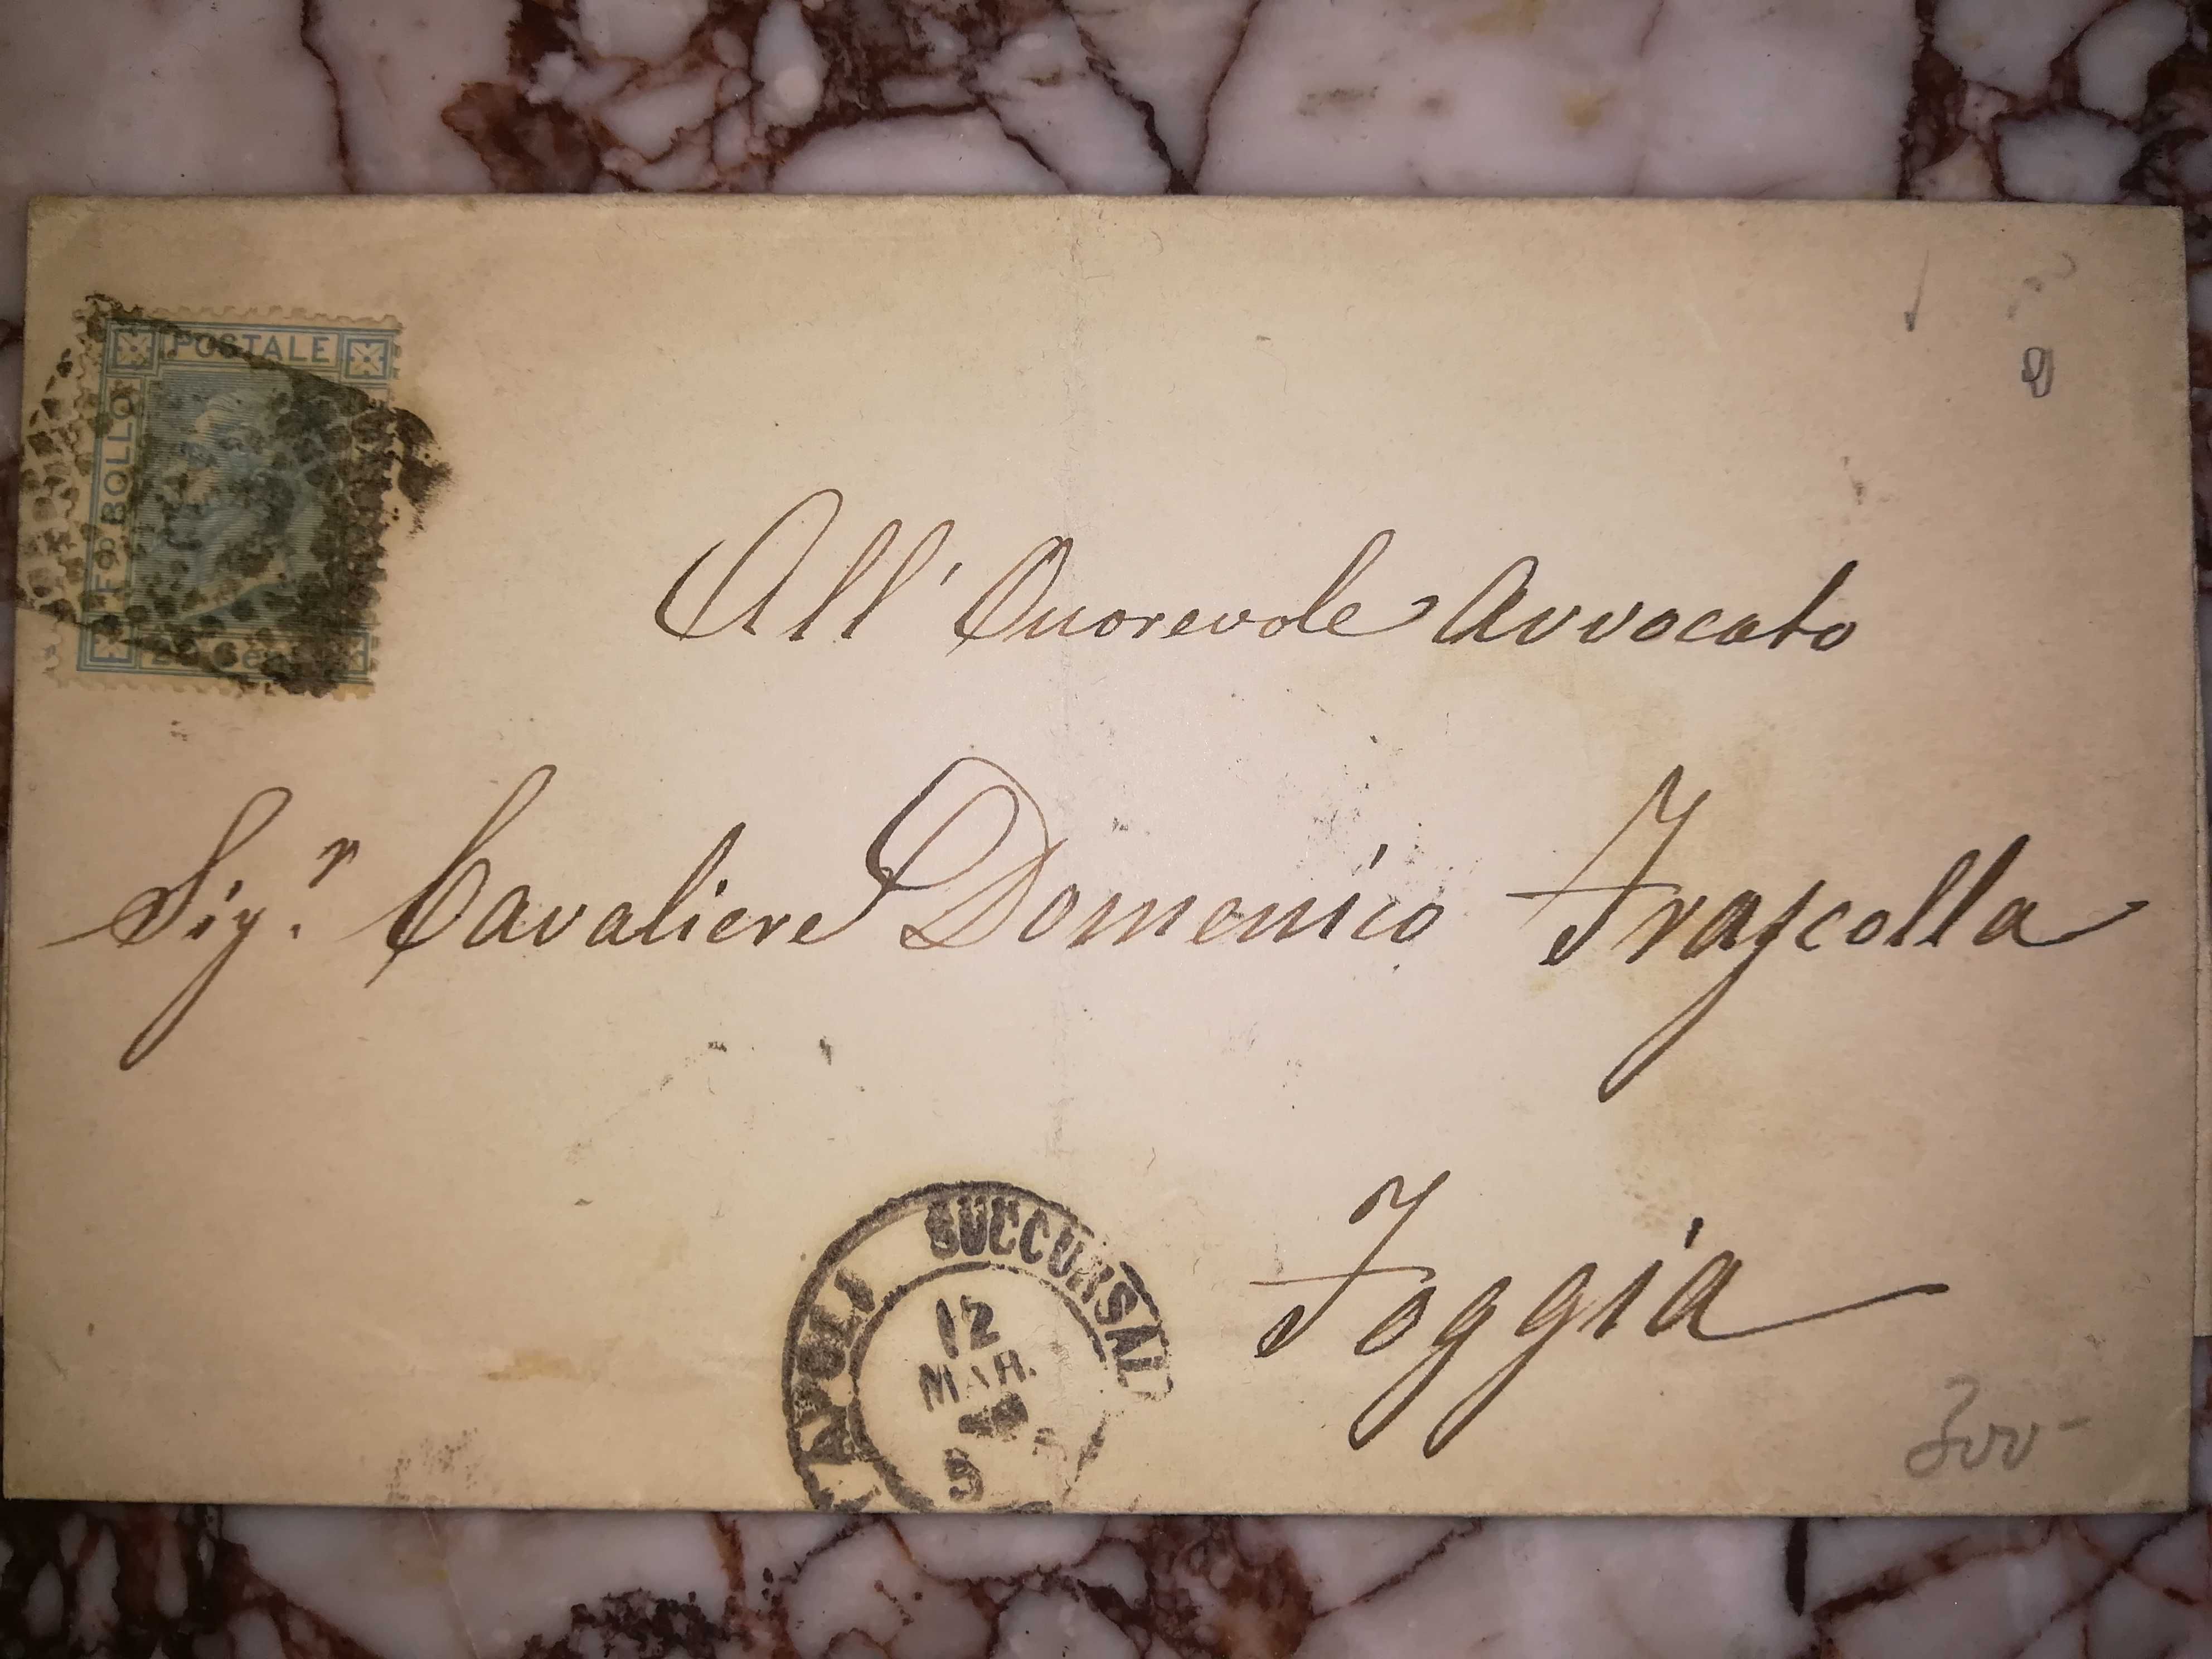 POSTALE
FCO BOLLO
20 Cent
All' Onorevole Avvocato
Sig.r Cavaliere Domenico Frascolla
Foggia
NAPOLI SUCCURSALE
12
MAR.
300-